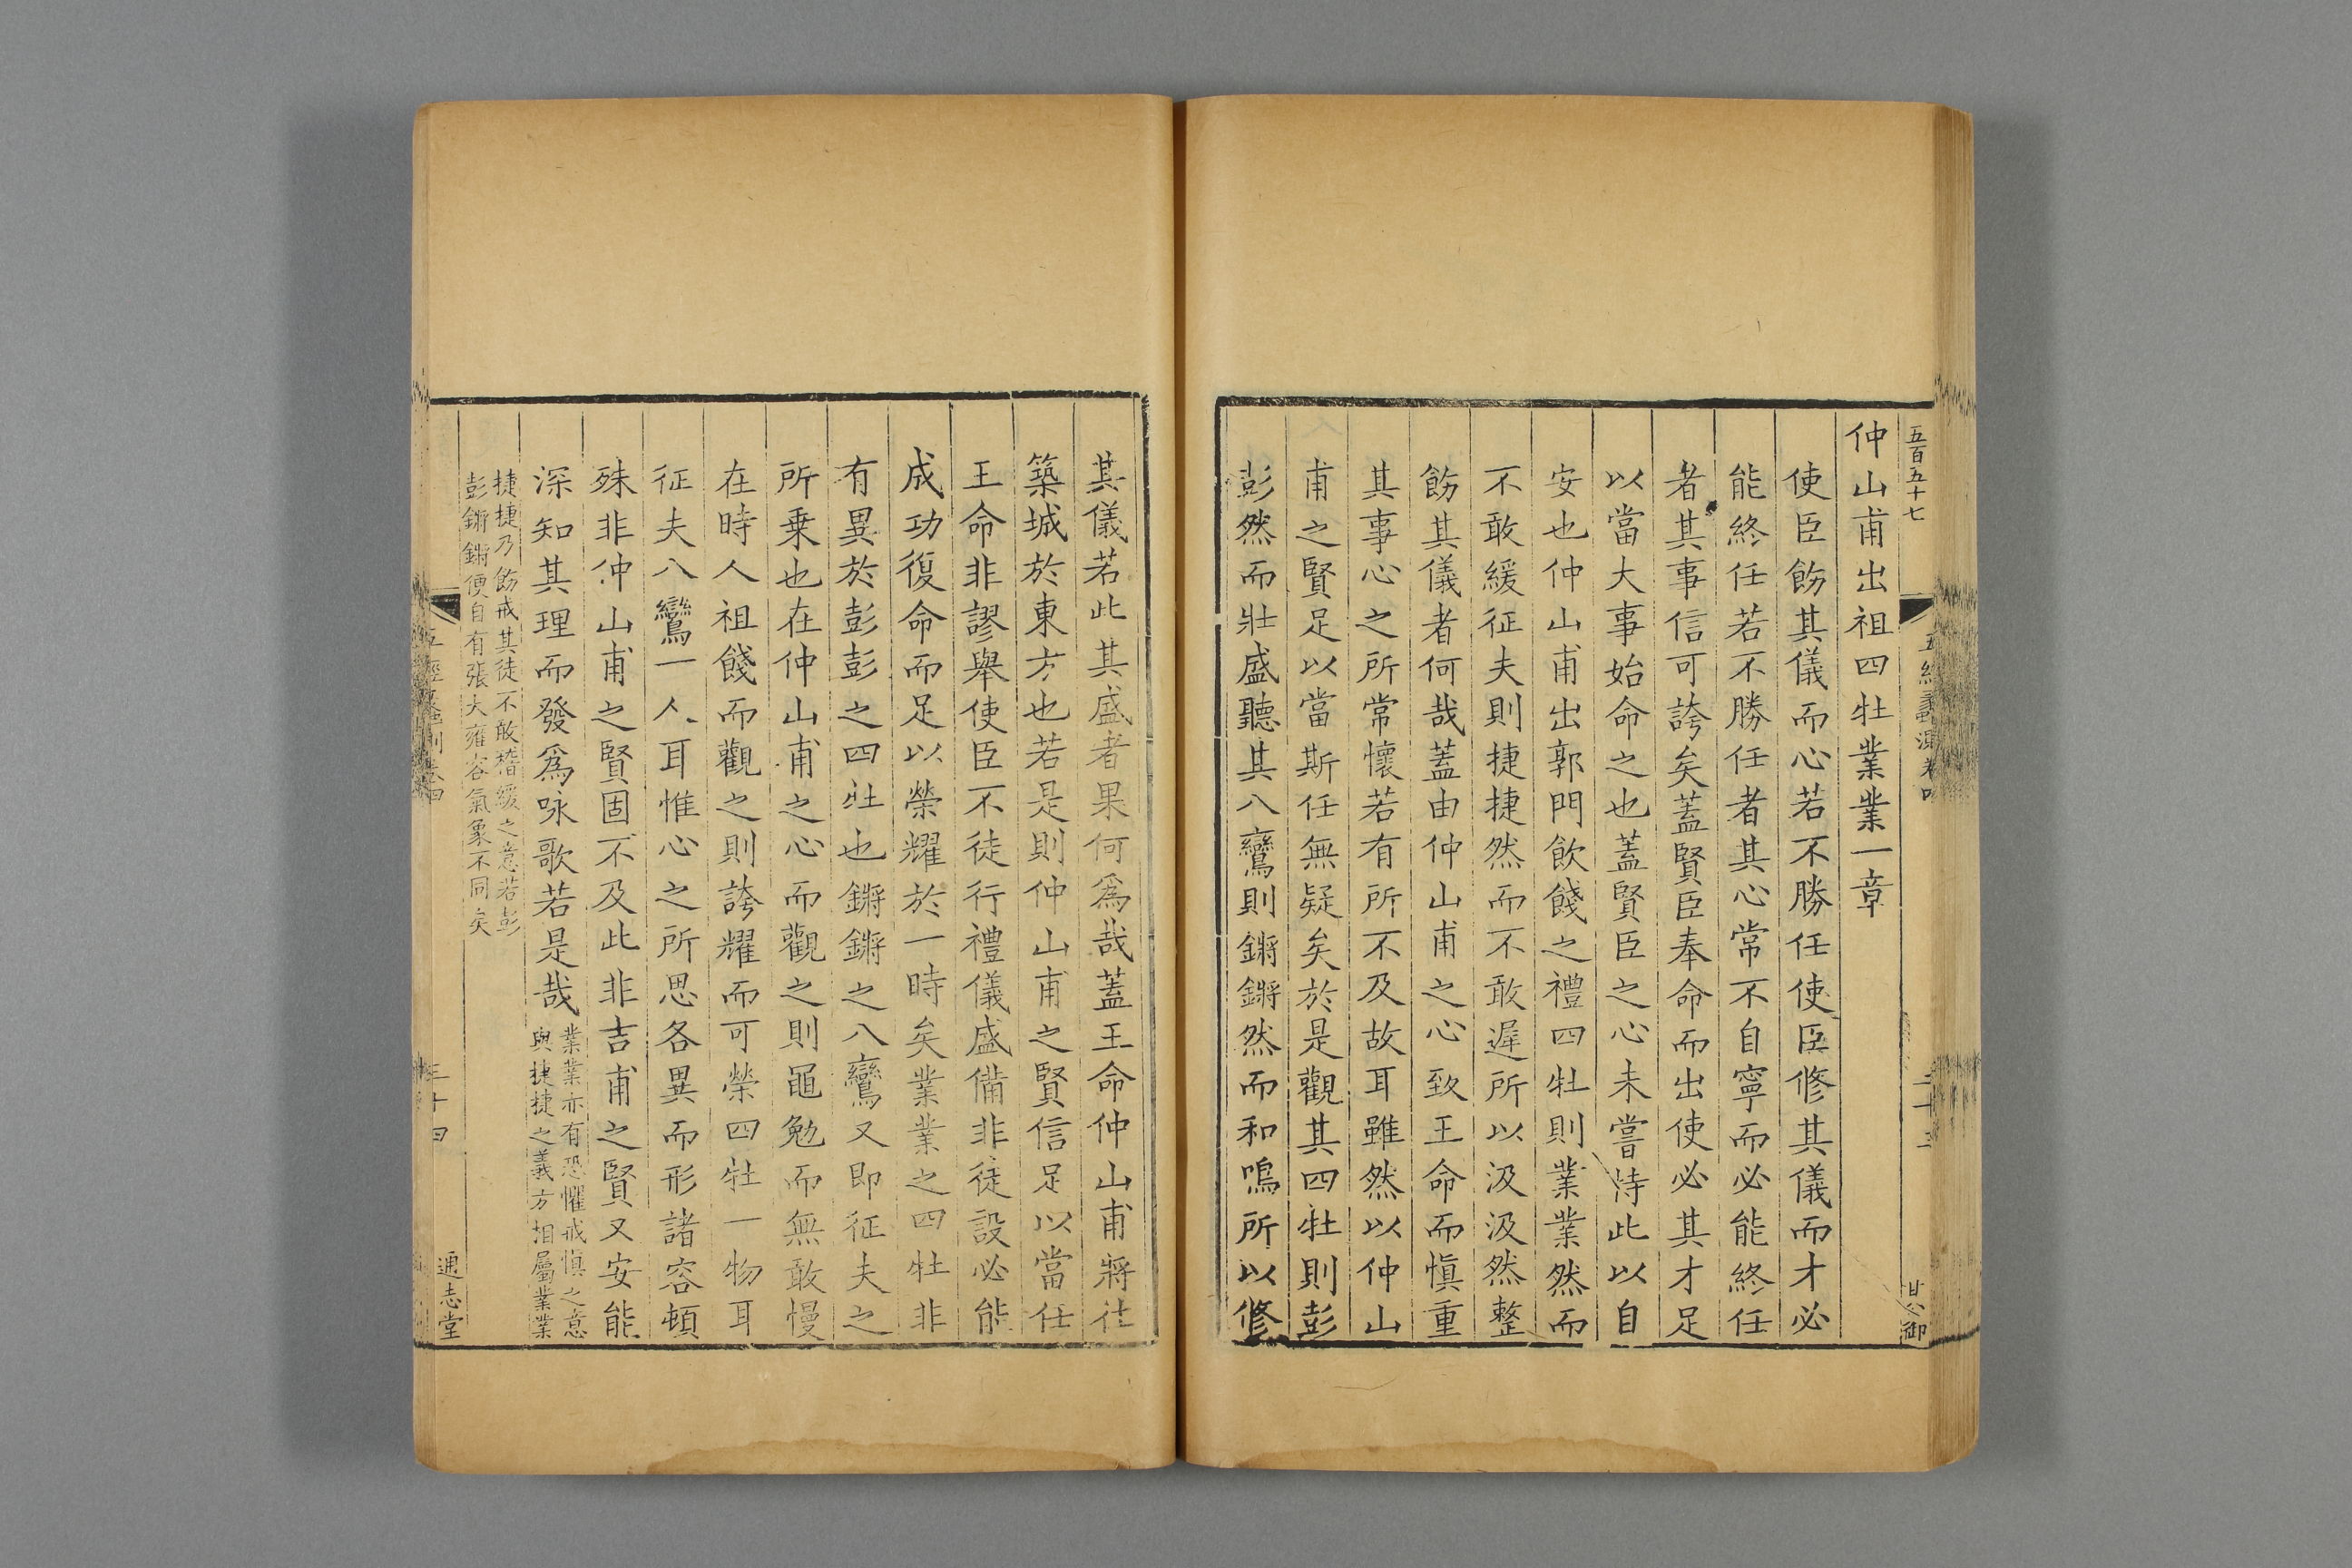 五百五十七
仲山甫出祖四牡業業一章
使臣飭其儀而心若不勝任使臣修其儀而才必
能終任若不勝任者其心常不自寧而必能終任
者其事信可誇矣蓋賢臣奉命而出使必其才足
以當大事始命之也蓋賢臣之心未嘗恃此以自
安也仲山甫出郭門飲餞之禮四牡則業業然而
不敢緩征夫則捷捷然而不敢遲所以汲汲然整
飭其儀者何哉蓋由仲山甫之心致王命而愼重
其事心之所常懷若有所不及故耳雖然以仲山
甫之賢足以當斯任無疑矣於是觀其四牡則彭
彭然而壯盛聽其八鸞則鏘鏘然而和鳴所以修
其儀若此其盛者果何爲哉蓋王命仲山甫將往
築城於東方也若是則仲山甫之賢信足以當任
王命非謬舉使臣不徒行禮儀盛備非徒設必能
成功復命而足以榮耀於一時矣業業之四牡非
有異於彭彭之四牡也鏘鏘之八鸞又即征夫之
所乗也在仲山甫之心而觀之則黽勉而無敢慢
在時人祖餞而觀之則誇耀而可榮四牡一物耳
征夫八鸞一人耳惟心之所思各異而形諸容頓
殊非仲山甫之賢固不及此非吉甫之賢又安能
深知其理而發爲咏歌若是哉
業業亦有恐懼戒愼之意
與捷捷之義方相屬業業
捷捷乃飭戒其徒不敢稽緩之意若彭
彭鏘鏘便自有張大雍容氣象不同矣
三十四
通志堂